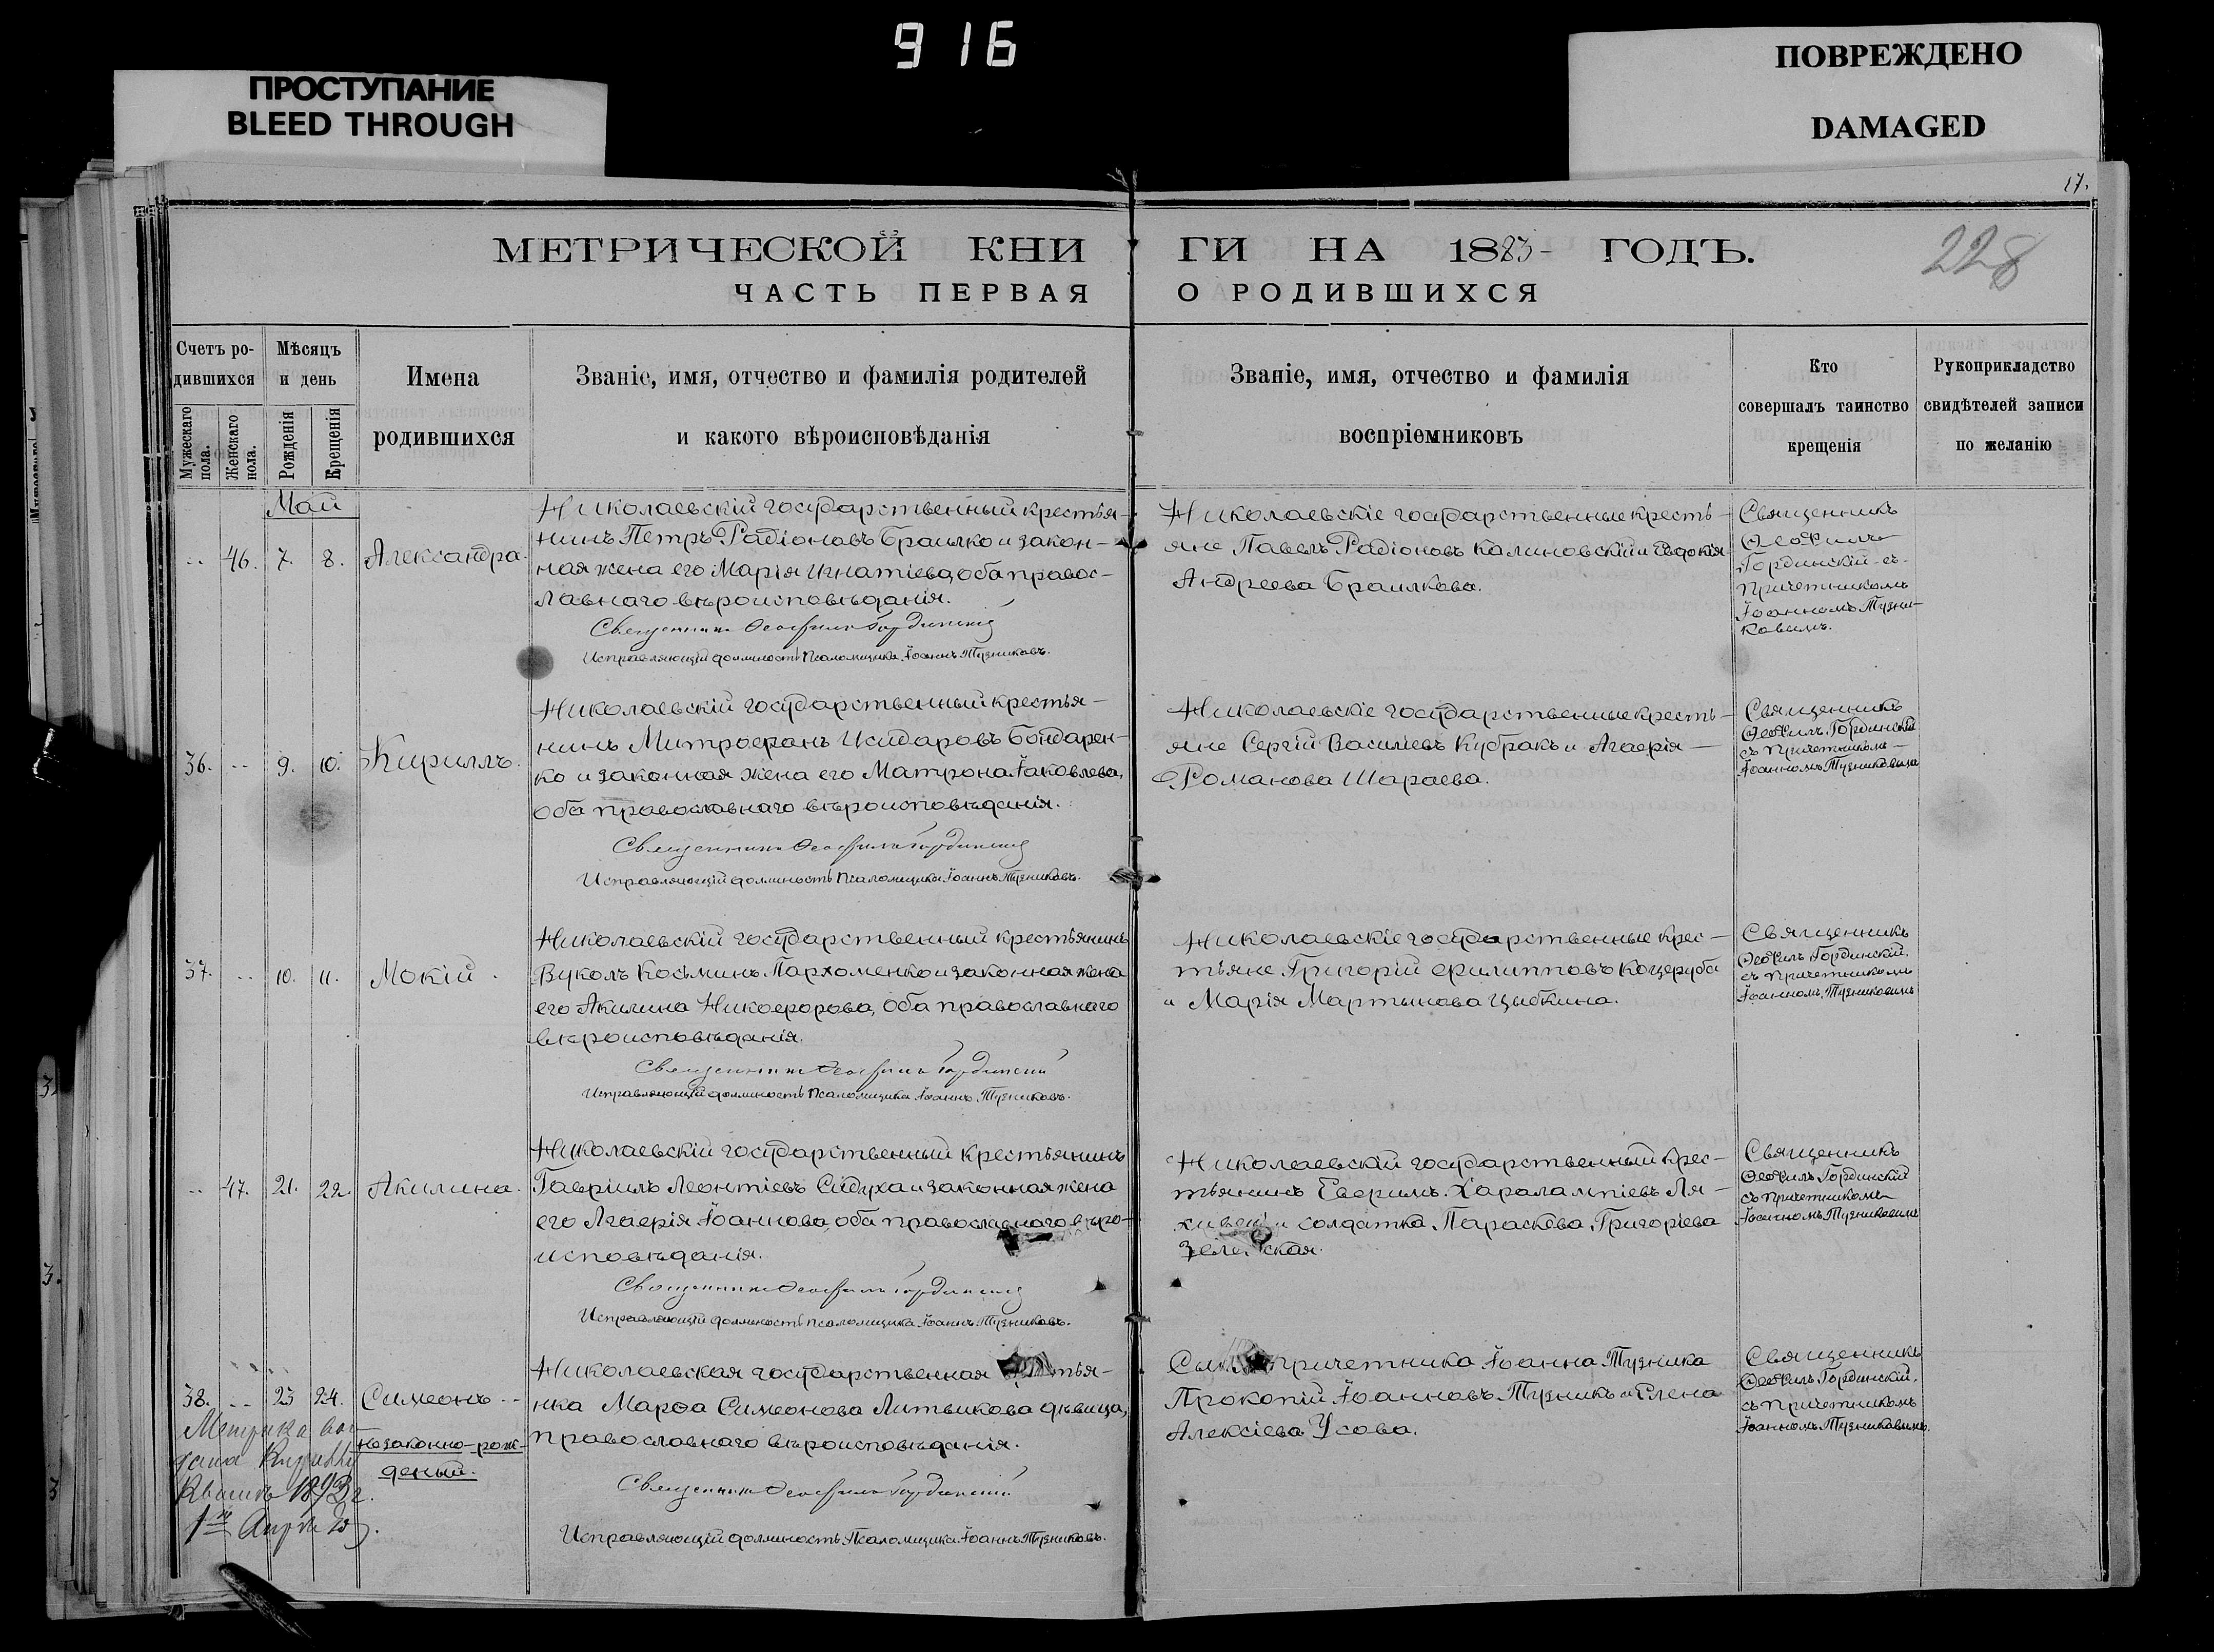 916
ПРОСТУПАНИЕ
BLEED THROUGH
ПОВРЕЖДЕНО
DAMAGED
17.
МЕТРИЧЕСКОЙ КНИ ГИ НА 1883 ГОДЪ.
228
ЧАСТЬ ПЕРВАЯ О РОДИВШИХСЯ
Счетъ ро-
дившихся
Мужескаго
пола.
Женскаго
пола.
Мѣсяцъ
и день
Рожденія
Крещенія
Имена
родившихся
Званіе, имя, отчество и фамилія родителей
и какого вѣроисповѣданія
Званіе, имя, отчество и фамилія
воспріемниковъ
Кто
совершалъ таинство
крещенія
Рукоприкладство
свидѣтелей записи
по желанію
Май
.. 46. 7. 8. Александра.
Николаевскій государственный крестья-
нинъ Петръ Радіоновъ Браилко и закон-
ная жена его Марія Игнатіева, оба правос-
лавнаго вѣроисповѣданія.
Священникъ Ѳеофилъ Гординскій
Исправляющій должность Псаломщика Іоаннъ Тузниковъ.
Николаевскіе государственные кресть-
яне Павелъ Радіоновъ Калиновскій и Евдокія
Андреева Браилкова.
Священникъ
Ѳеофилъ
Гординскій съ
Причетникомъ
Іоанномъ Тузни-
ковымъ.
36. -- 9. 10. Кириллъ.
Николаевскій государственный крестья-
нинъ Митрофанъ Исидоровъ Бондарен-
ко и законная жена его Матрона Іаковлева,
оба православнаго вѣроисповѣданія.
Священникъ Ѳеофилъ Гординскій
Исправляющій должность Псаломщика Іоаннъ Тузниковъ.
Николаевскіе государственные кресть-
яне Сергій Василіевъ Кубракъ и Агафія
Романова Шараева.
Священникъ
Ѳеофилъ Гординскій
съ Причетникомъ
Іоанномъ Тузниковымъ
37. -- 10. 11. Мокій.
Николаевскій государственный крестьянинъ
Вуколъ Косьминъ Пархоменко и законная жена
его Акилина Никифорова, оба православнаго
вѣроисповѣданія.
Священникъ Ѳеофилъ Гординскій
Исправляющій должность Псаломщика Іоаннъ Тузниковъ.
Николаевскіе государственные крес-
тьяне Григорій Филипповъ Коцеруба
и Марія Мартынова Цыбкина.
Священникъ
Ѳеофилъ Гординскій,
съ Причетникомъ
Іоанномъ Тузниковымъ
-- 47. 21. 22. Акилина.
Николаевскій государственный крестьянинъ
Гавріилъ Леонтіевъ Сидуха и законная жена
его Агафія Іоаннова, оба православнаго вѣро-
исповѣданія.
Священникъ Ѳеофилъ Гординскій
Исправляющій должность Псаломщика Іоаннъ Тузниковъ.
Николаевскій государственный крес-
тьянинъ Евфимъ Харалампіевъ Ля-
и солдатка Параскева Григоріева
Священникъ
Ѳеофилъ Гординскій
съ Причетникомъ
Іоанномъ Тузниковымъ
38. -- 23 24. Симеонъ --
незаконно-рож-
деный.
Метрика
1893 г.
1
Николаевская государственная
нка Марѳа Симеонова Литвикова дѣвица,
православнаго вѣроисповѣданія.
Священникъ Ѳеофилъ Гординскій
Исправляющій должность Псаломщика Іоаннъ Тузниковъ.
причетника Іоанна Тузника
Прокопій Іоанновъ Тузникъ и Елена
Алексіева Усова.
Священникъ
Ѳеофилъ Гординскій,
съ Причетникомъ
Іоанномъ Тузниковымъ.